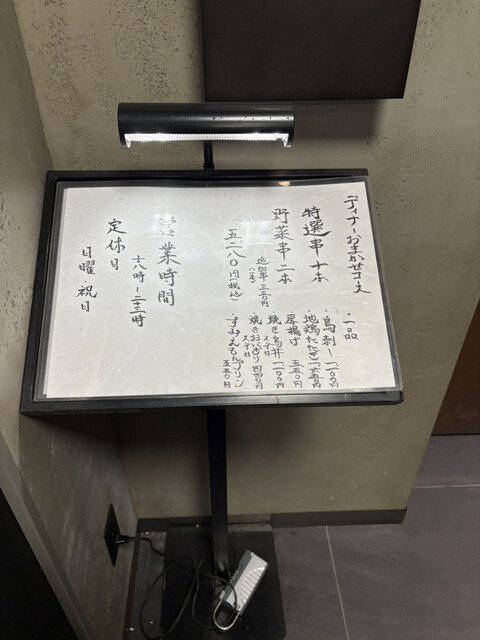 ディナーおまかせコース
特選串十本
野菜串二本
追加串三三〇円
(一本)
五二八〇円(税込)
・一品
・鳥刺し一一〇〇円
・地鶏たたき一六五〇円
・厚揚げ 五五〇円
・焼き鳥丼 一一〇〇円
スープ付
・焼きおにぎり 四四〇円
スープ付
プリン 五五〇円
営業時間
十八時〜二十三時
定休日
日曜 祝日